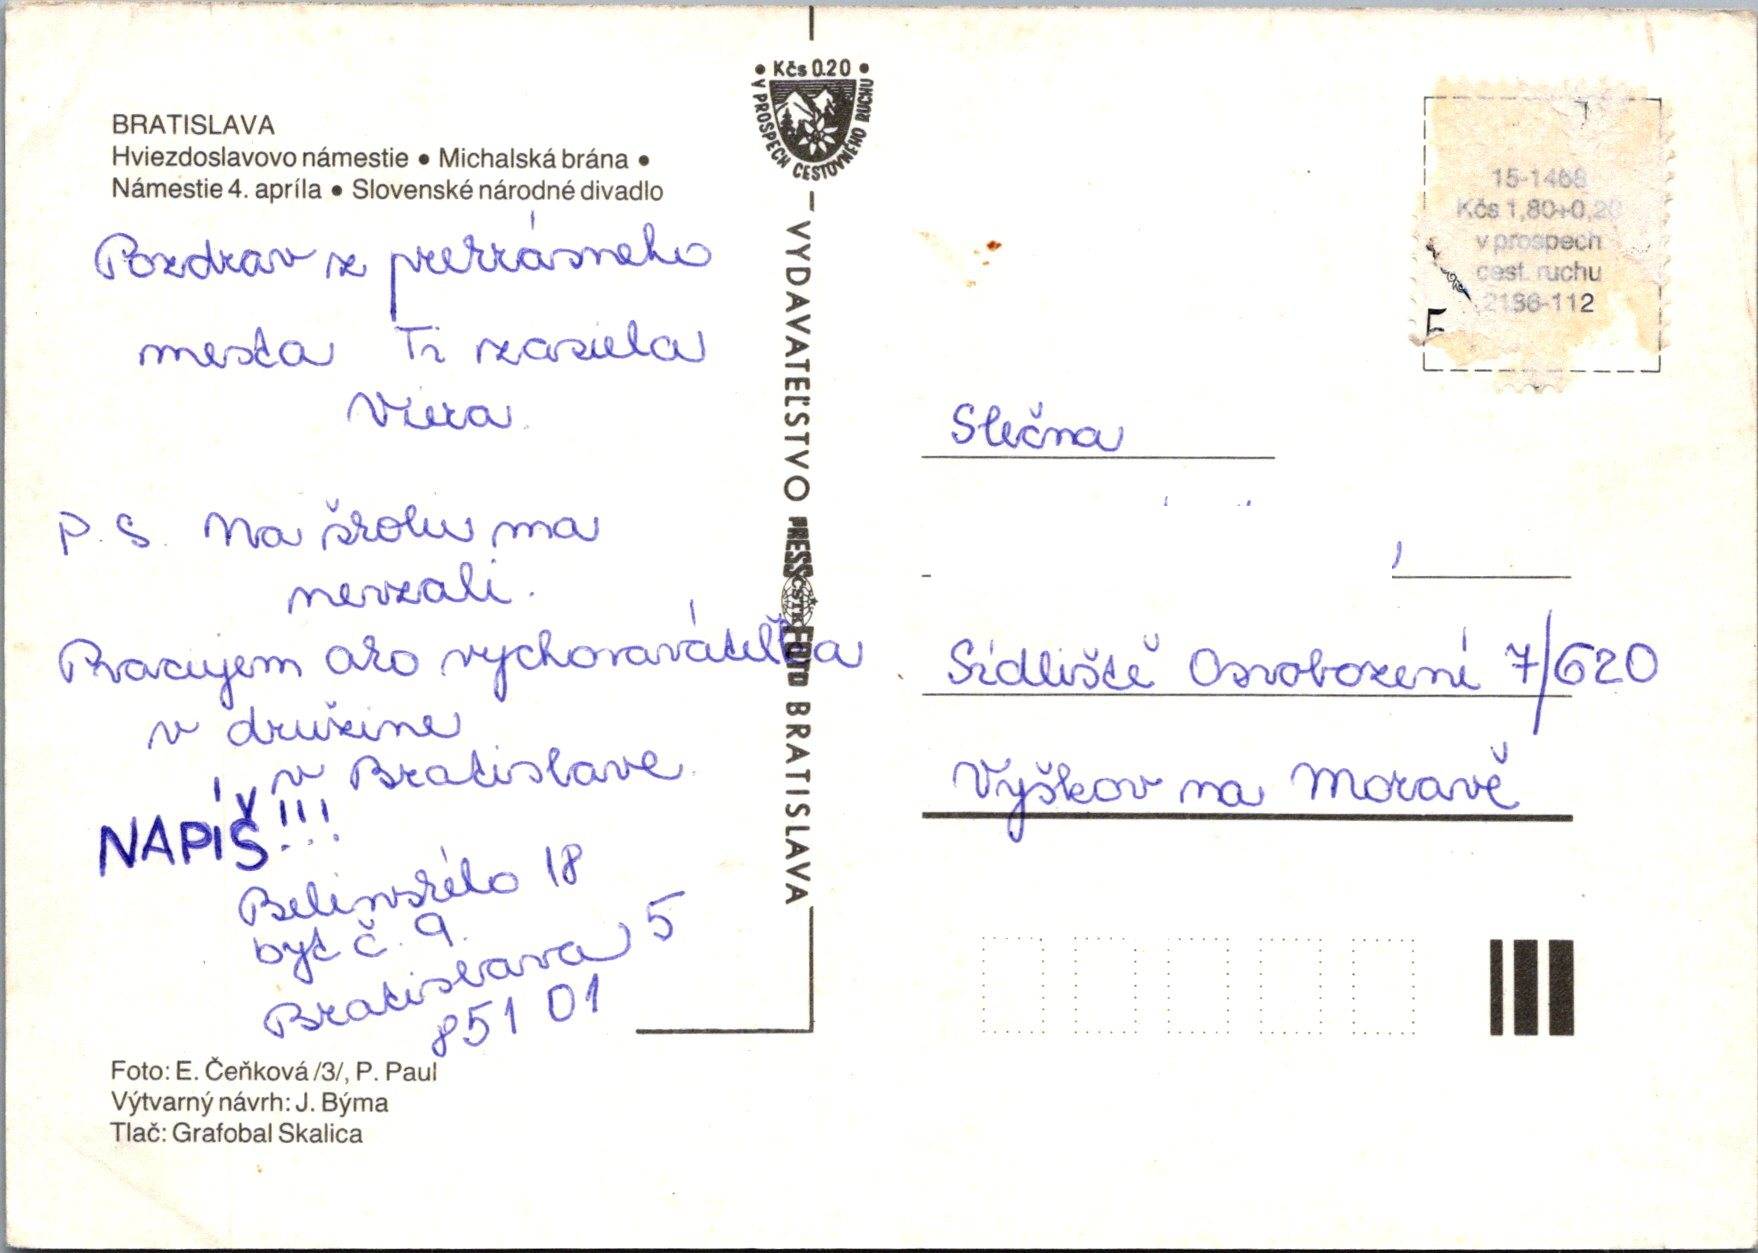 BRATISLAVA
Hviezdoslavovo námestie • Michalská brána •
Námestie 4. apríla • Slovenské národné divadlo
Pozdrav z prekrásneho
mesta Ti zasiela
Viera.
P. S. Na školu ma
nevzali.
Pracujem ako vychovávateľka
v družine
v Bratislave.
NAPÍŠ!!!
Belinského 18
byt č. 9.
Bratislava 5
851 01
Foto: E. Čeňková /3/, P. Paul
Výtvarný návrh: J. Býma
Tlač: Grafobal Skalica
• Kčs 0.20 •
V PROSPECH CESTOVNÉHO RUCHU
VYDAVATEĽSTVO PRESSFOTO BRATISLAVA
ČSTK
15-1468
Kčs 1,80+0,20
v prospech
cest. ruchu
2186-112
Slečna
Sídliště Osvobození 7/620
Vyškov na Moravě